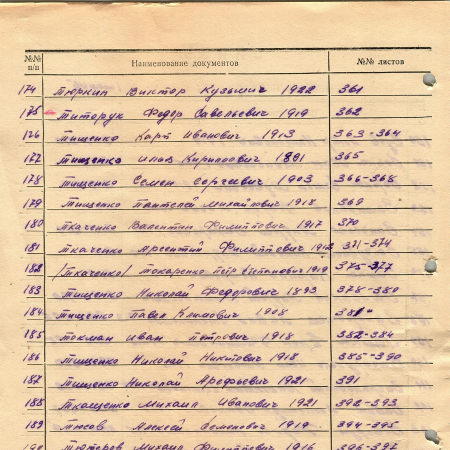 №№ п/п Наименование документов №№ листов
174 Тюркин Виктор Кузьмич 1922 361
175 Титорук Федор Савельевич 1919 362
176 Тищенко Карп Иванович 1913 363-364
177 Тищенко Кириллович 1891 365
178 Тищенко Семен Сергеевич 1903 366-368
179 Тищенко Пантелей Михайлович 1918 369
180 Ткаченко Валентин Филиппович 1917 370
181 Ткаченко Арсентий Филиппович 1912 371-374
182 /Ткаченко/ Токаренко Петр Степанович 1919 375-377
183 Тищенко Николай Федорович 1893 378-380
184 Тищенко Павел Климович 1908 381
185 Токман Иван Петрович 1918 382-384
186 Тищенко Николай Никитович 1918 385-390
187 Тищенко Николай Арефьевич 1921 391
188 Михаил Иванович 1921 392-393
189 Тюсов Алексей Семенович 1919 394-395
190 Тютеров Михаил Филиппович 1916 396-397